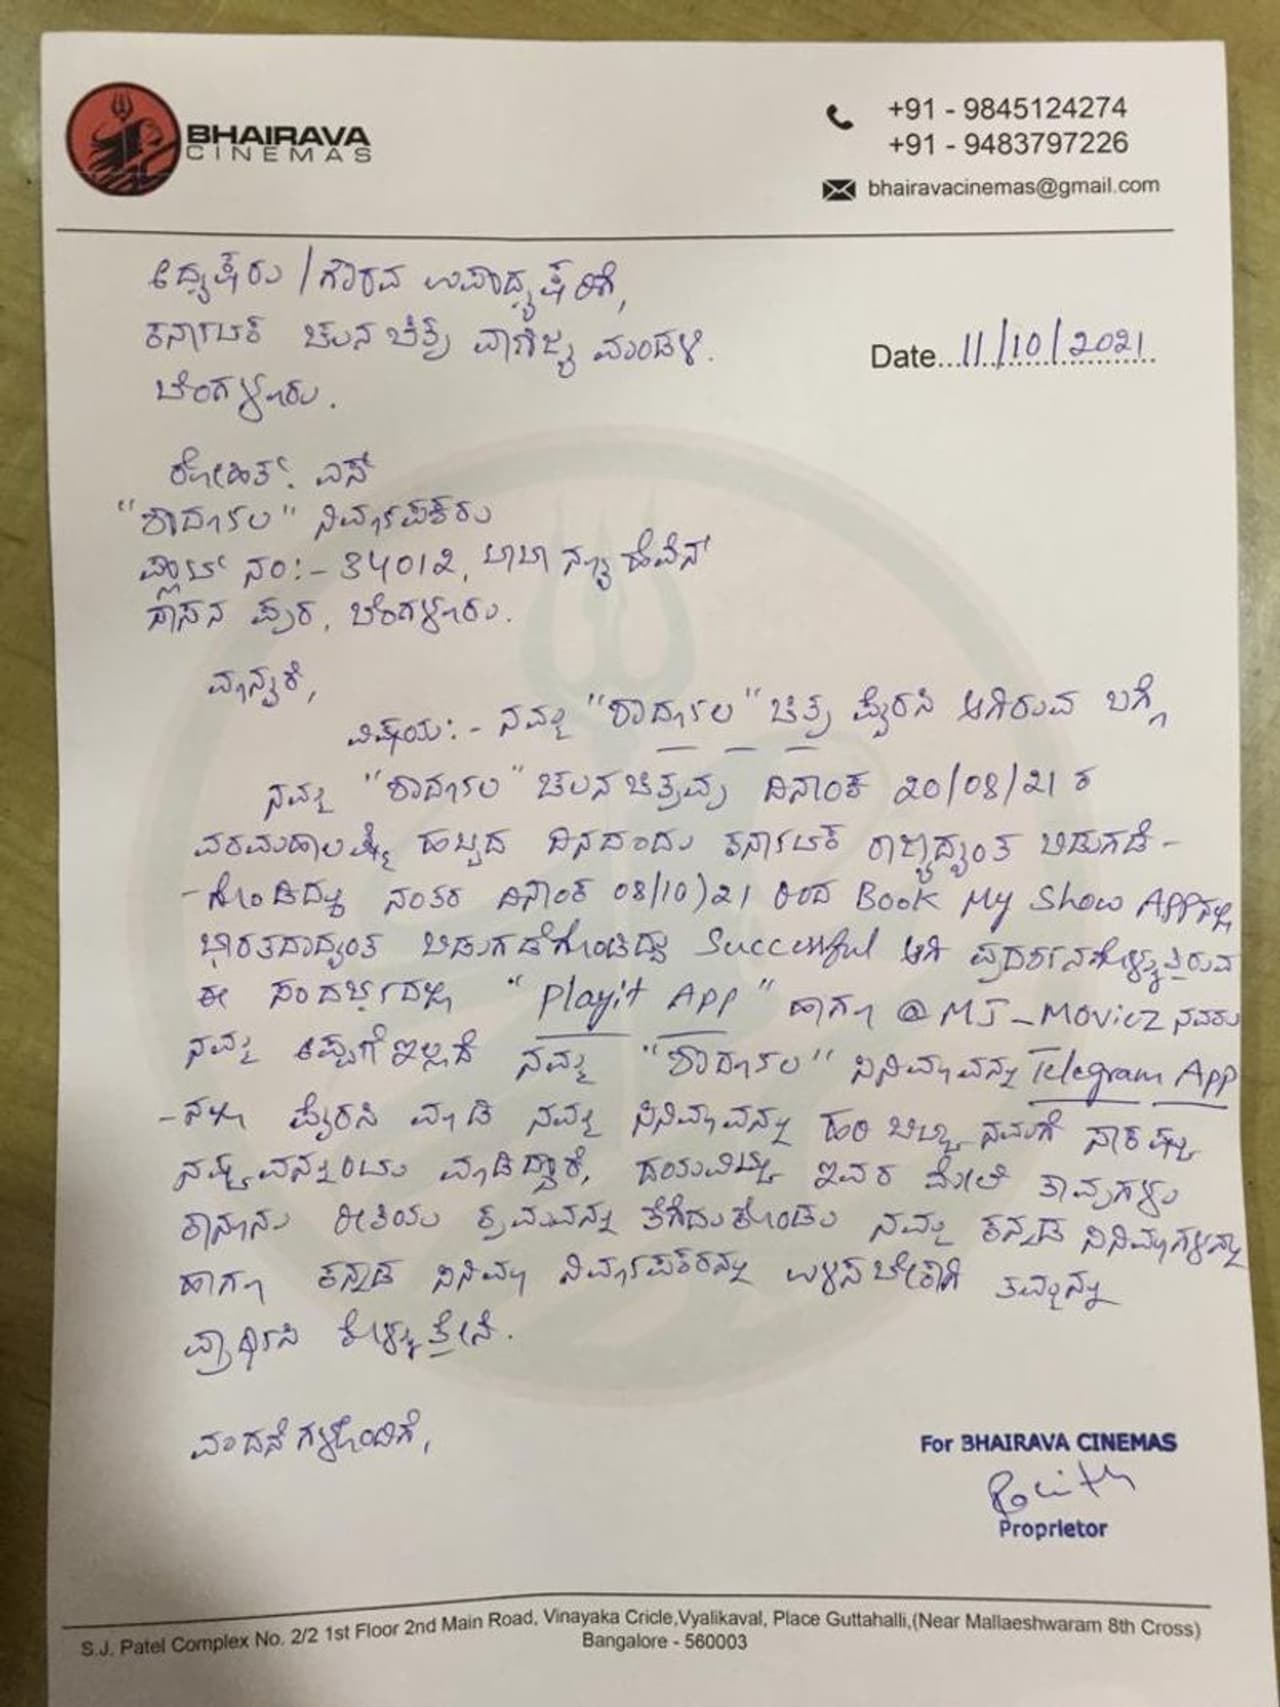 BHAIRAVA
CINEMAS
+91 - 9845124274
+91 - 9483797226
bhairavacinemas@gmail.com
ಅಧ್ಯಕ್ಷರು / ಗೌರವ ಉಪಾಧ್ಯಕ್ಷರಿಗೆ,
ಕರ್ನಾಟಕ ಚಲನ ಚಿತ್ರ ವಾಣಿಜ್ಯ ಮಂಡಳಿ.
Date 11/10/2021
ಬೆಂಗಳೂರು.
ರೋಹಿತ್. ಎಸ್
"ಶಾರ್ದೂಲ" ನಿರ್ಮಾಪಕರು
ಪ್ಲಾಟ್ ನಂ:- 34012, ಬಾಬಾ ನ್ಯೂ ಹೆವೆನ್
ಸಾಸನ ಪುರ, ಬೆಂಗಳೂರು.
ಮಾನ್ಯರೆ,
ವಿಷಯ:- ನಮ್ಮ "ಶಾರ್ದೂಲ" ಚಿತ್ರ ಪೈರಸಿ ಆಗಿರುವ ಬಗ್ಗೆ
ನಮ್ಮ "ಶಾರ್ದೂಲ" ಚಲನ ಚಿತ್ರವು ದಿನಾಂಕ 20/08/21 ರ
ವರಮಹಾಲಕ್ಷ್ಮಿ ಹಬ್ಬದ ದಿನದಂದು ಕರ್ನಾಟಕ ರಾಜ್ಯಾದ್ಯಂತ ಬಿಡುಗಡೆ-
-ಗೊಂಡಿದ್ದು ನಂತರ ದಿನಾಂಕ 08/10/21 ರಿಂದ Book My Show APPನಲ್ಲಿ
ಭಾರತದಾದ್ಯಂತ ಬಿಡುಗಡೆಗೊಂಡಿದ್ದು Successful ಆಗಿ ಪ್ರದರ್ಶನಗೊಳ್ಳುತ್ತಿರುವ
ಈ ಸಂದರ್ಭದಲ್ಲಿ "Playit App" ಹಾಗೂ @MJ_Moviez ನವರು
ನಮ್ಮ ಅಪ್ಪಣೆ ಇಲ್ಲದೆ ನಮ್ಮ "ಶಾರ್ದೂಲ" ಸಿನಿಮಾವನ್ನು Telegram App
-ನಲ್ಲಿ ಪೈರಸಿ ಮಾಡಿ ನಮ್ಮ ಸಿನಿಮಾವನ್ನು ಹರಿ ಬಿಟ್ಟು ನಮಗೆ ಸಾಕಷ್ಟು
ನಷ್ಟವನ್ನುಂಟು ಮಾಡಿದ್ದಾರೆ, ದಯವಿಟ್ಟು ಇವರ ಮೇಲೆ ತಾವುಗಳು
ಕಾನೂನು ರೀತಿಯ ಕ್ರಮವನ್ನು ತೆಗೆದುಕೊಂಡು ನಮ್ಮ ಕನ್ನಡ ಸಿನಿಮಾಗಳನ್ನು
ಹಾಗೂ ಕನ್ನಡ ಸಿನಿಮಾ ನಿರ್ಮಾಪಕರನ್ನು ಉಳಿಸಬೇಕಾಗಿ ತಮ್ಮನ್ನು
ಪ್ರಾರ್ಥಿಸಿ ಕೇಳುತ್ತೇನೆ.
ವಂದನೆಗಳೊಂದಿಗೆ,
For BHAIRAVA CINEMAS
Rohith
Proprietor
S.J. Patel Complex No. 2/2 1st Floor 2nd Main Road, Vinayaka Cricle,Vyalikaval, Place Guttahalli,(Near Mallaeshwaram 8th Cross)
Bangalore - 560003